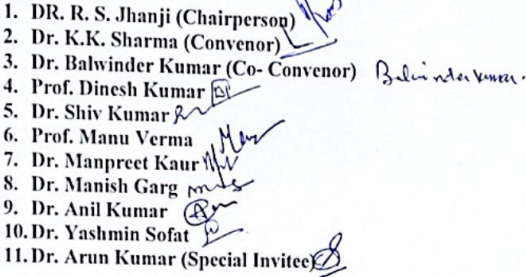 1. DR. R. S. Jhanji (Chairperson)
2. Dr. K.K. Sharma (Convenor)
3. Dr. Balwinder Kumar (Co- Convenor) Balwinder Kumar
4. Prof. Dinesh Kumar
5. Dr. Shiv Kumar
6. Prof. Manu Verma
7. Dr. Manpreet Kaur
8. Dr. Manish Garg
9. Dr. Anil Kumar
10. Dr. Yashmin Sofat
11. Dr. Arun Kumar (Special Invitee)